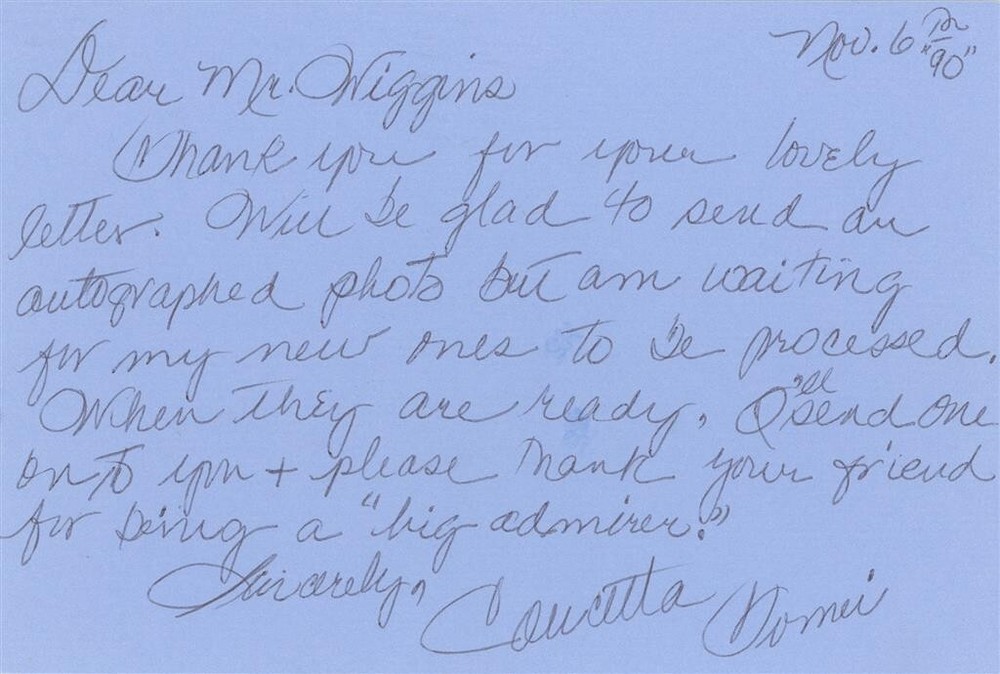 Nov. 6th
"90"
Dear Mr. Wiggins
Thank you for your lovely
letter. Will be glad to send an
autographed photo but am waiting
for my new ones to be processed.
When they are ready, I'll send one
on to you + please thank your friend
for being a "big admirer."
Sincerely,
Concetta Tomei